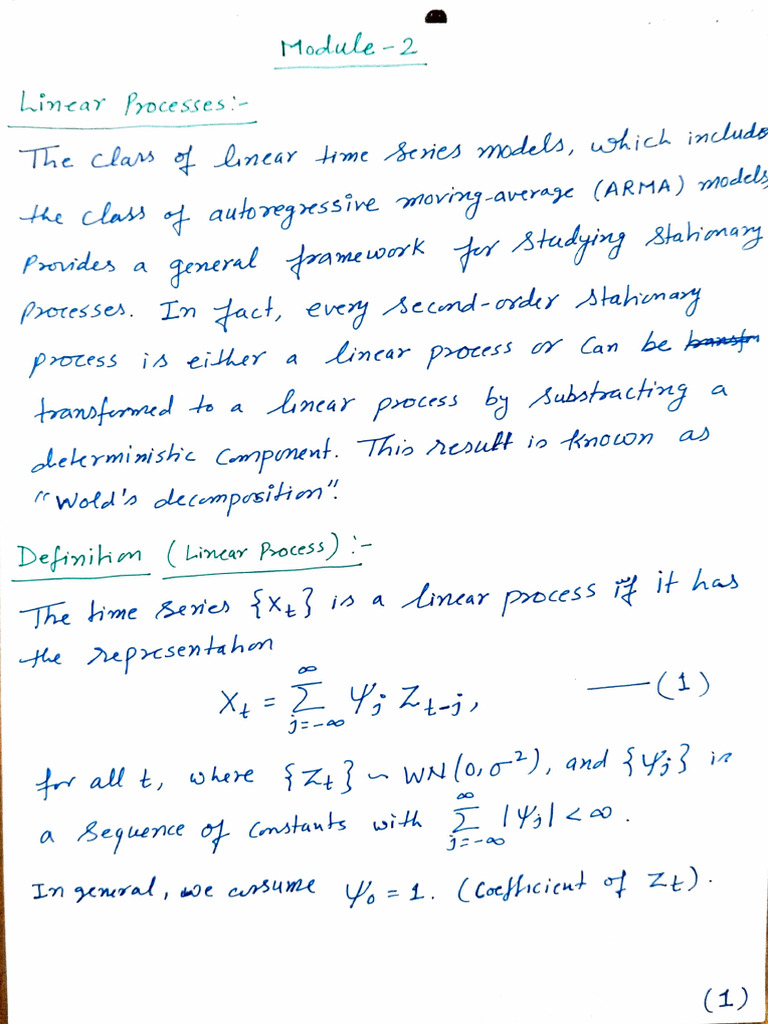 Module-2
Linear Processes:-
The class of linear time series models, which include
the class of autoregressive moving-average (ARMA) models,
provides a general framework for studying stationary
processes. In fact, every second-order stationary
process is either a linear process or can be transfm
transformed to a linear process by substracting a
deterministic component. This result is known as
"Wold's decomposition".
Definition (Linear Process):-
The time series {X_t} is a linear process if it has
the representation
X_t = ∑_{j=-∞}^{∞} ψ_j Z_{t-j}, —(1)
for all t, where {Z_t} ~ WN(0,σ²), and {ψ_j} is
a sequence of constants with ∑_{j=-∞}^{∞} |ψ_j| < ∞.
In general, we assume ψ_0 = 1. (coefficient of Z_t).
(1)